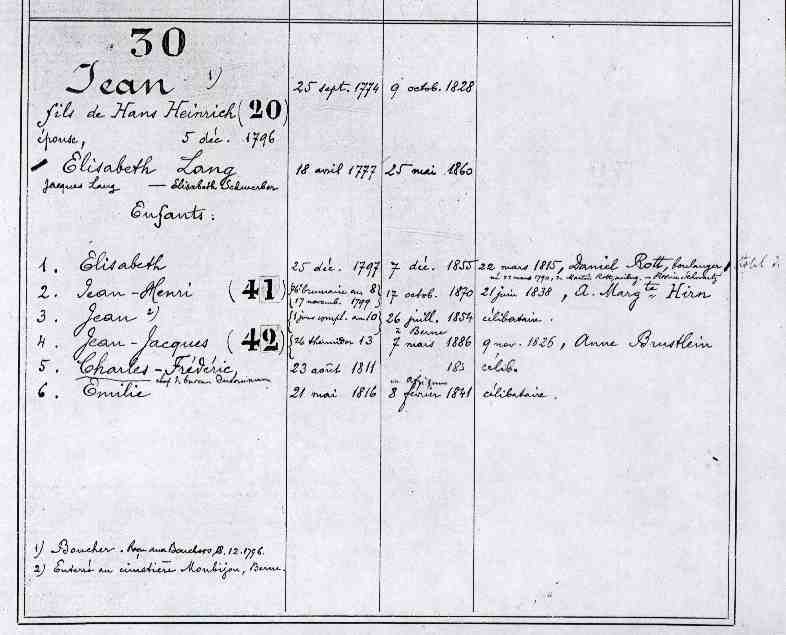 30
Jean 1) 25 sept. 1774 9 octob. 1828
fils de Hans Heinrich (20)
épouse, 5 déc. 1796
Elisabeth Lang 18 avril 1777 25 mai 1860
Jacques Lang — Elisabeth Schwerber
Enfants:
1. Elisabeth 25 déc. 1797 7 déc. 1855 22 mars 1815, Daniel Rott, boulanger
2. Jean-Henri (41) 26 brumaire an 8 17 octob. 1870 21 juin 1838, A. Margte Hirn
(17 novemb. 1799)
3. Jean 2) 11 jour compl. an 10 26 juill. 1854 célibataire.
à Berne
4. Jean-Jacques (42) 26 thermidor 13 7 mars 1886 9 nov. 1826, Anne Brustlein
5. Charles-Frédéric, 23 août 1811 185 célib.
chef de bureau
6. Emilie 21 mai 1816 8 février 1841 célibataire.
1) Boucher. Reçu aux Bouchers, 8.12.1796.
2) Enterré au cimetière Monbijou, Berne.